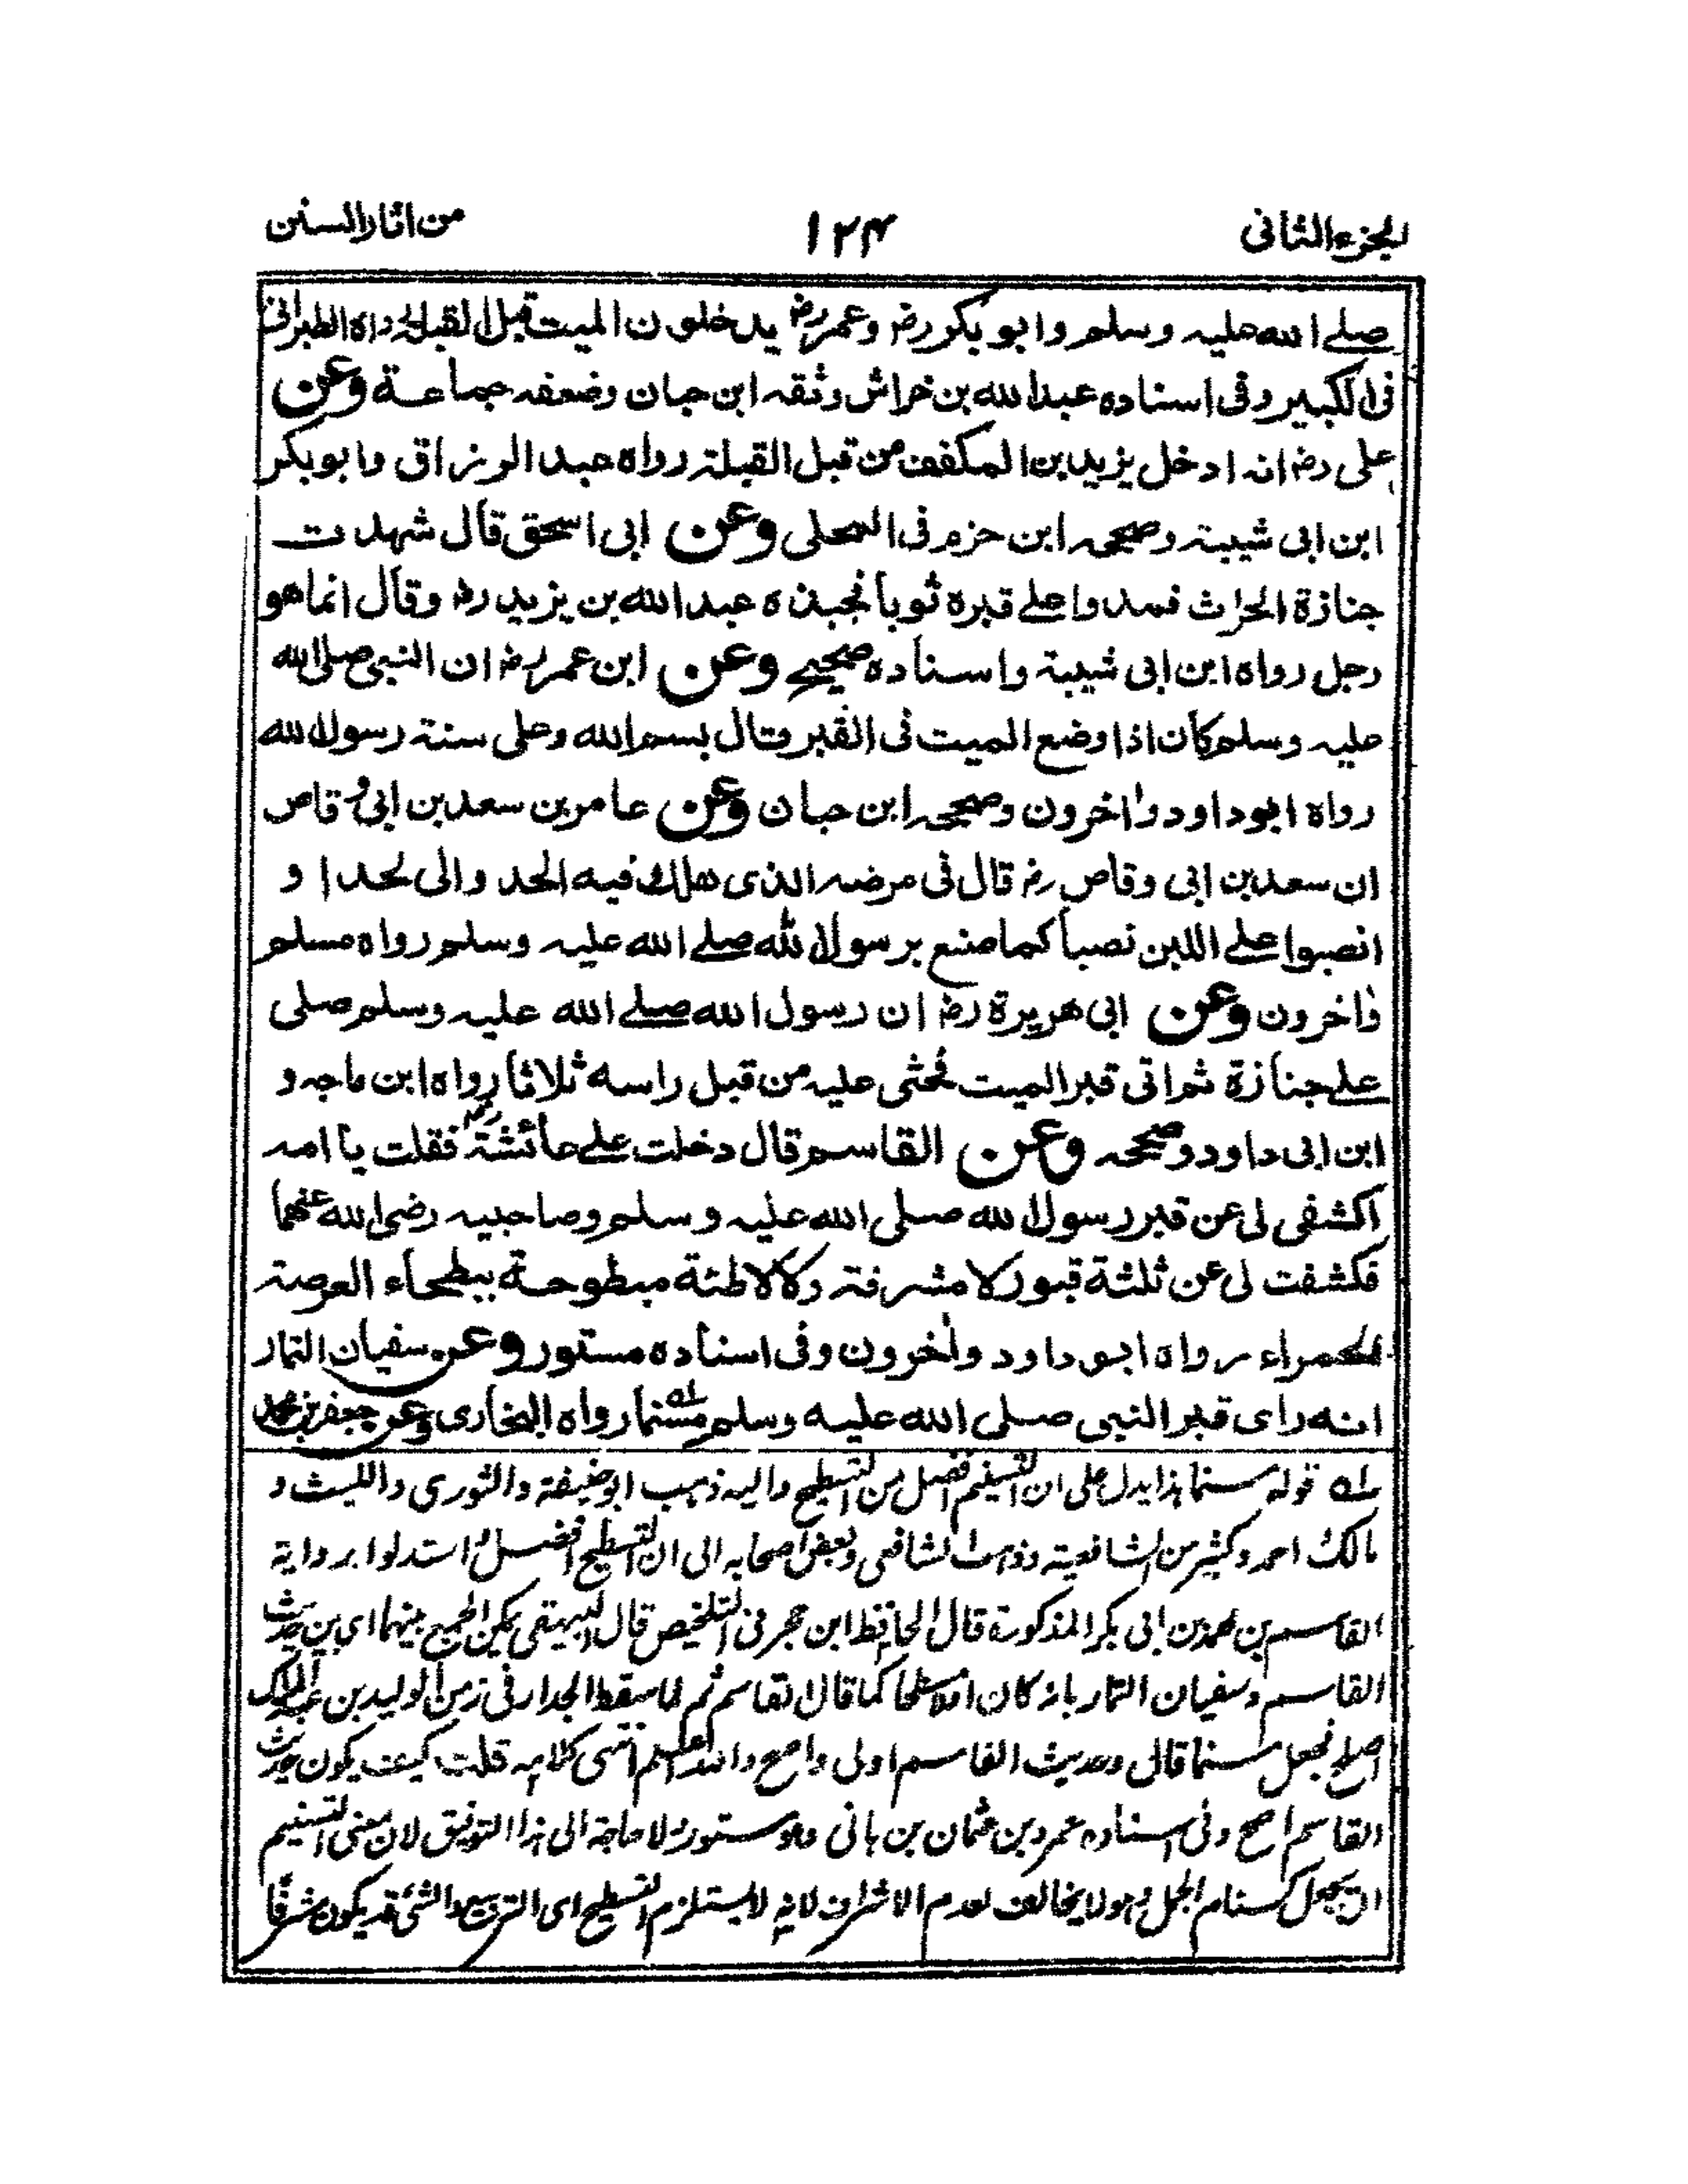 الجزء الثانی ۱۲۴ من اثار السنن
صلے الله علیہ وسلم وابو بکر رضہ وعمر رضہ یدخلون المیت قبل القبلۃ رواہ الطبرانی
فی الکبیر وفی اسنادہ عبد الله بن خراش وثقہ ابن حبان وضعفہ جماعۃ وعن
علی رضہ انہ ادخل یزید بن المکفف من قبل القبلۃ رواہ عبد الرزاق وابو بکر
ابن ابی شیبۃ وصححہ ابن حزم فی المحلی وعن ابی اسحق قال شهدت
جنازۃ الحارث فمدوا علے قبرہ ثوبا فجبذہ عبد الله بن یزید رضہ وقال انما هو
رجل رواہ ابن ابی شیبۃ واسنادہ صحیح وعن ابن عمر رضہ ان النبی صلی الله
علیہ وسلم کان اذا وضع المیت فی القبر قال بسم الله وعلی سنۃ رسول الله
رواہ ابوداود واٰخرون وصححہ ابن حبان وعن عامر بن سعد بن ابی وقاص
ان سعد بن ابی وقاص رضہ قال فی مرضہ الذی هلك فیه الحد والی لحدا و
انصبوا علے اللبن نصبا کما صنع برسول الله صلے الله علیہ وسلم رواہ مسلم
واٰخرون وعن ابی هریرۃ رضہ ان رسول الله صلے الله علیہ وسلم صلی
علے جنازۃ ثم اتی قبر المیت فحثی علیہ من قبل راسه ثلاثا رواہ ابن ماجہ و
ابن ابی داود وصححہ وعن القاسم قال دخلت علے عائشۃ رضہ فقلت یا امہ
اکشفی لی عن قبر رسول الله صلی الله علیہ وسلم وصاحبیہ رضی الله عنهما
فکشفت لی عن ثلثۃ قبور لا مشرفۃ ولا لاطئۃ مبطوحۃ ببطحاء العرصۃ
الحمراء رواہ ابو داود واٰخرون وفی اسنادہ مستور وعن سفیان التمار
انه رای قبر النبی صلی الله علیه وسلم مسنما رواہ البخاری وعن جعفر بن محمد
لہ قولہ مسنما ہذا یدل علی ان التسنیم افضل من التسطیح والیہ ذہب ابو حنیفۃ والثوری واللیث و
مالک احمد وکثیر من الشافعیۃ وذہب الشافعی وبعض اصحابہ الی ان التسطیح افضل استدلوا بروایۃ
القاسم بن محمد بن ابی بکر المذکورۃ قال الحافظ ابن حجر فی التلخیص قال البیہقی یمکن الجمع بینہما ای بین حدیث
القاسم وسفیان التمار بانہ کان اولا مسطحا کما قال القاسم ثم لما سقط الجدار فی زمن الولید بن عبد الملک
اصلح فجعل مسنما قال وحدیث القاسم اولی واصح والله اعلم انتہی کلامہ قلت کیف یکون حدیث
القاسم اصح وفی اسنادہ عمرو بن عثمان بن ہانی وہو مستور ولا حاجۃ الی ہذا التوفیق لان معنی التسنیم
ان یجعل کسنام الجمل وہو لا یخالف لعدم الاشراف لانہ لا یستلزم التسطیح ای التربیع والشئ قد یکون مشرفا